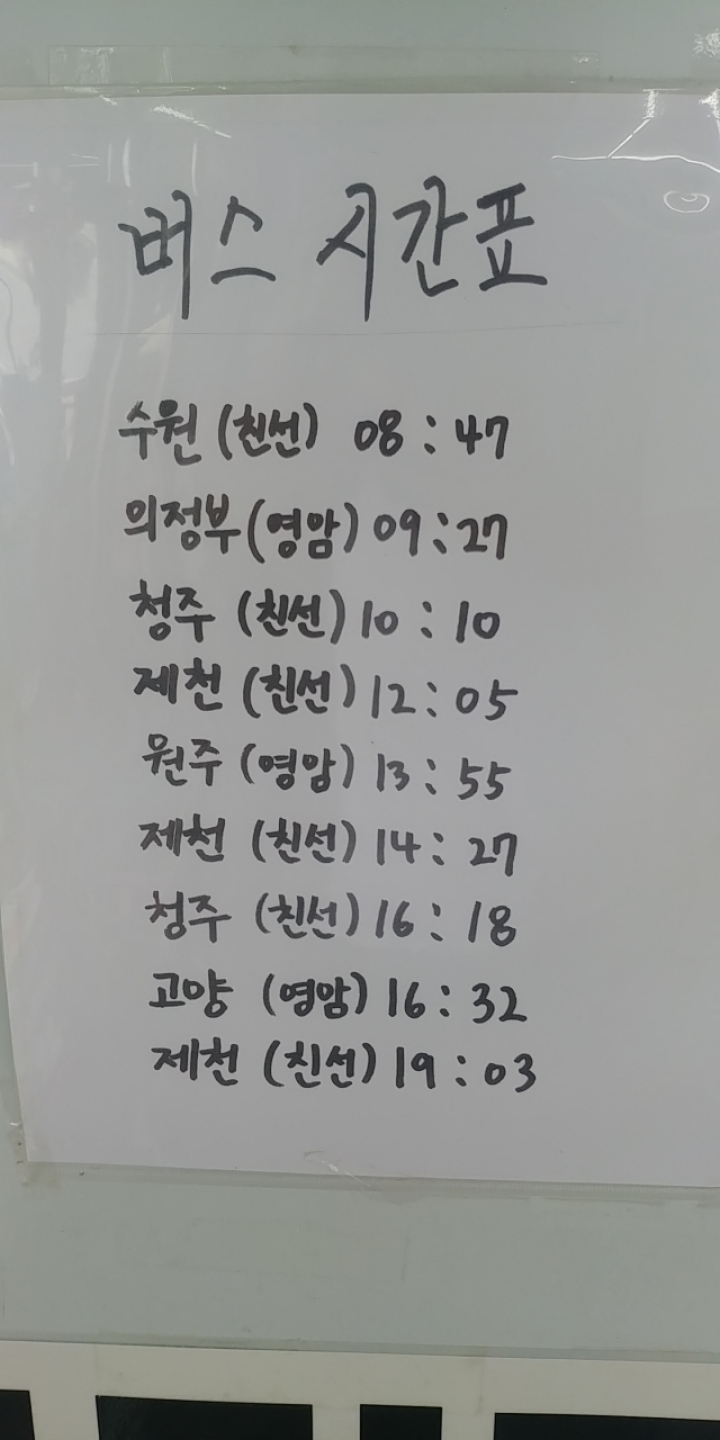 버스 시간표
수원 (친선) 08 : 47
의정부 (영암) 09 : 27
청주 (친선) 10 : 10
제천 (친선) 12 : 05
원주 (영암) 13 : 55
제천 (친선) 14 : 27
청주 (친선) 16 : 18
고양 (영암) 16 : 32
제천 (친선) 19 : 03